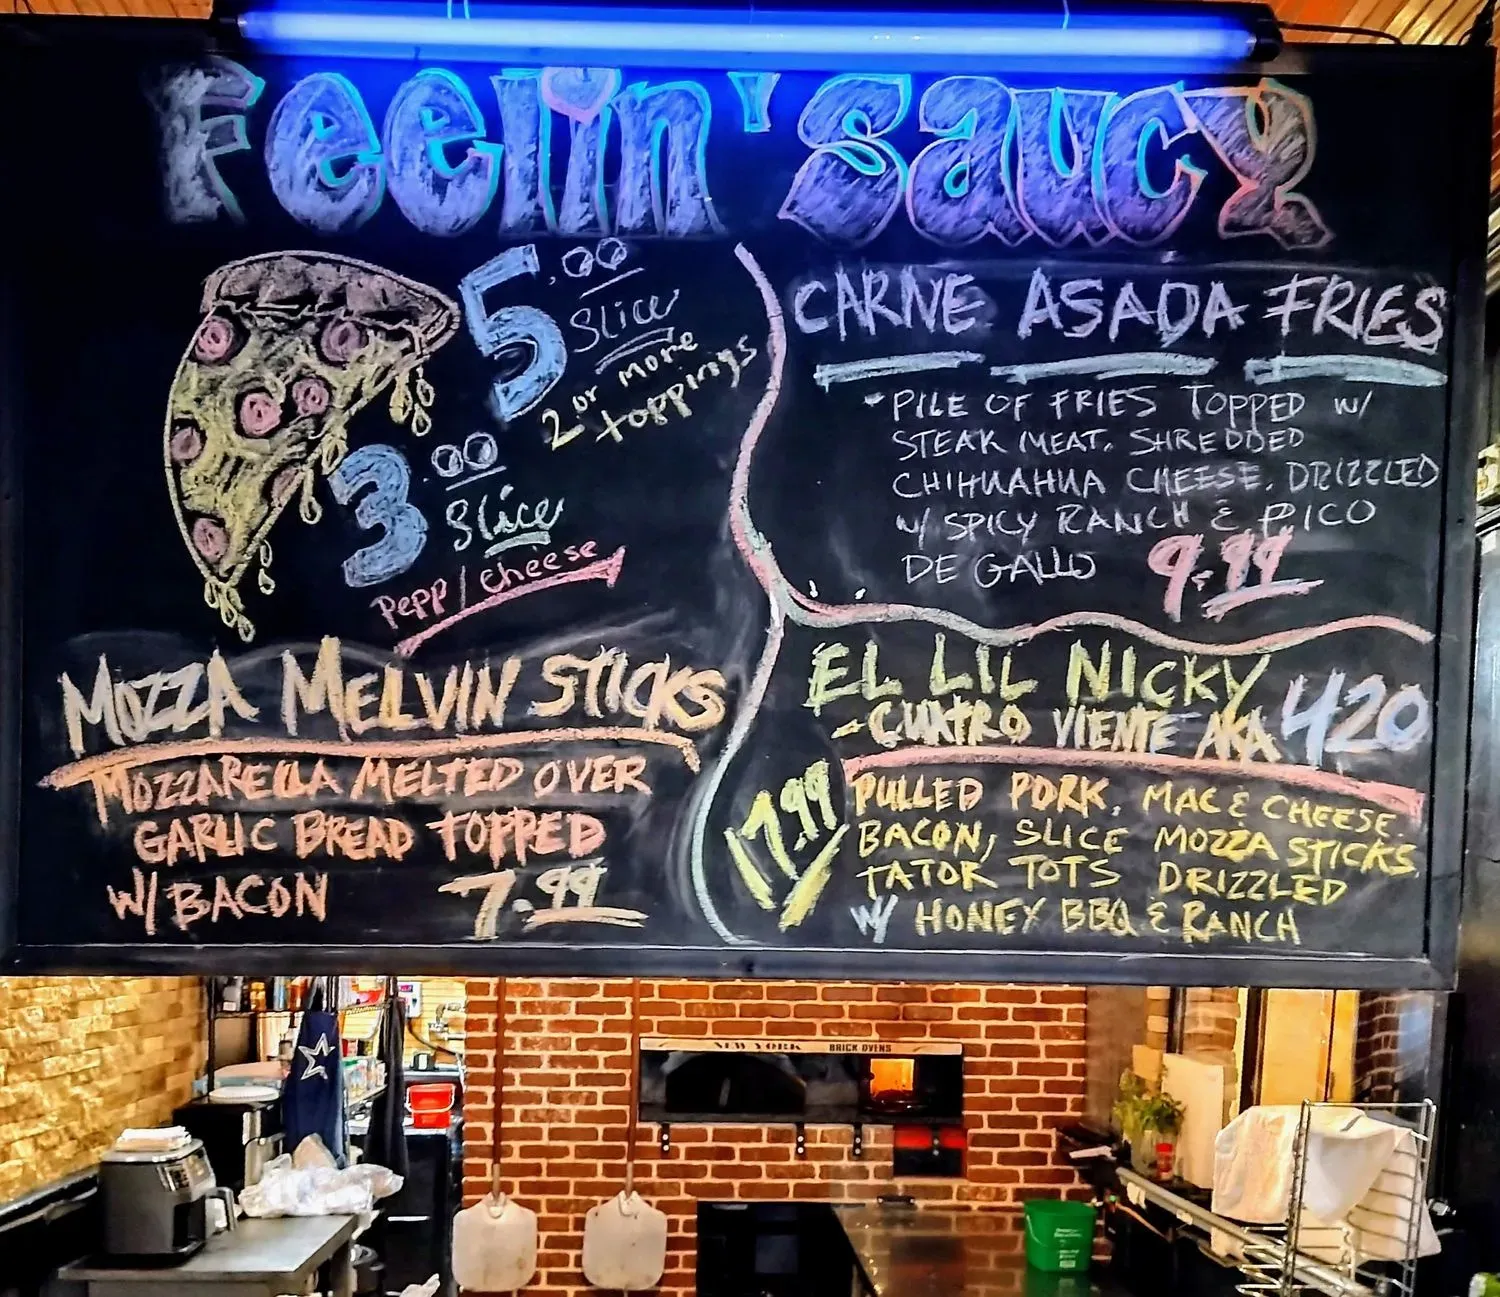 Feelin' Saucy
5.00
Slice
2 or more
toppings
3.00
Slice
Pepp/Cheese
CARNE ASADA FRIES
- PILE OF FRIES TOPPED W/
STEAK MEAT, SHREDDED
CHIHUAHUA CHEESE. DRIZZLED
W/ SPICY RANCH & PICO
DE GALLO 9.99
MOZZA MELVIN STICKS
MOZZARELLA MELTED OVER
GARLIC BREAD TOPPED
W/ BACON 7.99
EL LIL NICKY
- CUATRO VIENTE AKA 420
17.99
PULLED PORK, MAC & CHEESE.
BACON, SLICE MOZZA STICKS
TATOR TOTS DRIZZLED
W/ HONEY BBQ & RANCH
NEW YORK BRICK OVENS